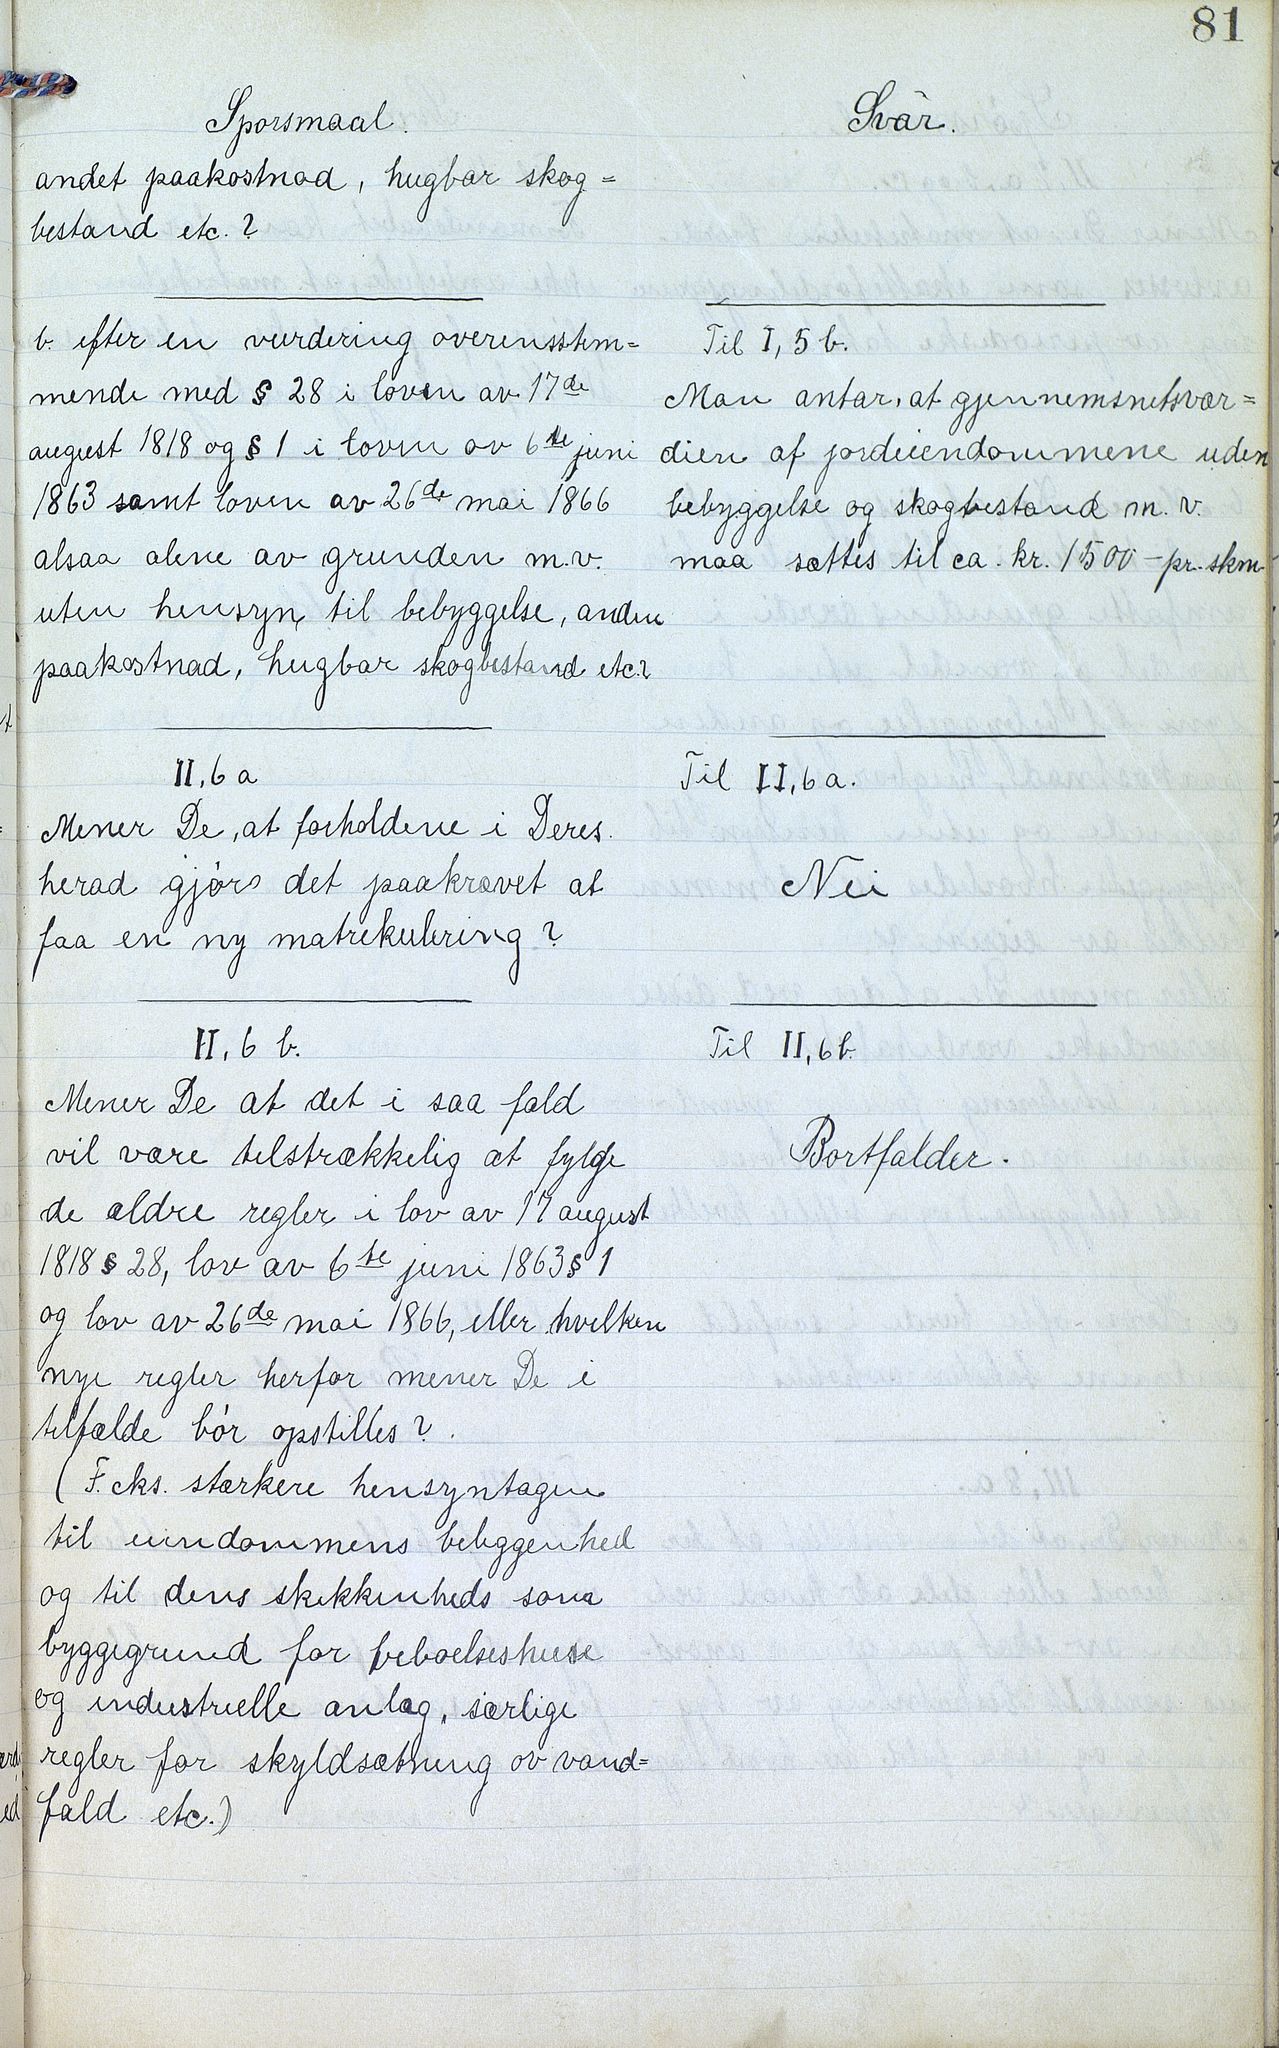 81
Sporsmaal.
andet paakostnad, hugbar skog=
bestand etc.?
b. efter en vurdering overensstem=
mende med § 28 i loven av 17de
august 1818 og § 1 i loven av 6te juni
1863 samt loven av 26de mai 1866
alsaa alene av grunden m.v.
uten hensyn til bebyggelse, anden
paakostnad, hugbar skogbestand etc.?
II, 6 a
Mener De, at forholdene i Deres
herad gjör det paakrævet at
faa en ny matrikulering?
II, 6 b.
Mener De at det i saa fald
vil være tilstrækkelig at fylge
de ældre regler i lov av 17 august
1818 § 28, lov av 6te juni 1863 § 1
og lov av 26de mai 1866, eller hvilken
nye regler herfor mener De i
tilfælde bör opstilles?.
(F. eks. stærkere hensyntagen
til eiendommens beliggenhed
og til dens skikkenheds som
byggegrund for beboelseshuse
og industrielle anlæg, særlige
regler for skyldsætning av vand=
fald etc.)
Svar.
Til I, 5 b.
Man antar, at gjennemsnitsvær=
dien af jordeiendommene uden
bebyggelse og skogbestand m. v.
maa sættes til ca. kr. 1500 - pr. skm
Til II, 6 a.
Nei
Til II, 6 b.
Bortfalder.